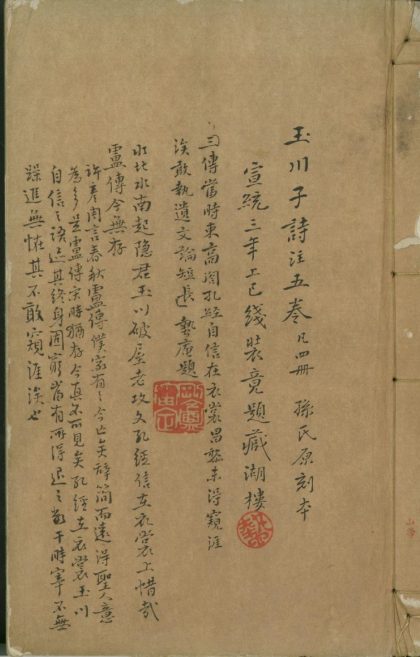 玉川子詩注五卷 凡四冊 孫氏原刻本
宣統三年上巳綫裝竟題藏湖樓
三傳當時束高閣孔經自信在衣裳昌黎未得窺涯
涘敢執遺文論短長 題
水北水南起隱君玉川破屋老攻文孔經信在衣裳上惜哉
盧傳今無存
許彥周言春秋盧傳僕家有之今亡矣辭簡而遠得聖人意
為多是盧傳宋時猶存今真不可見矣孔經在衣裳玉川
自信之語迹其終身困窮當有所得退之干時宰不無
躁進無怪其不敢窺涯涘也